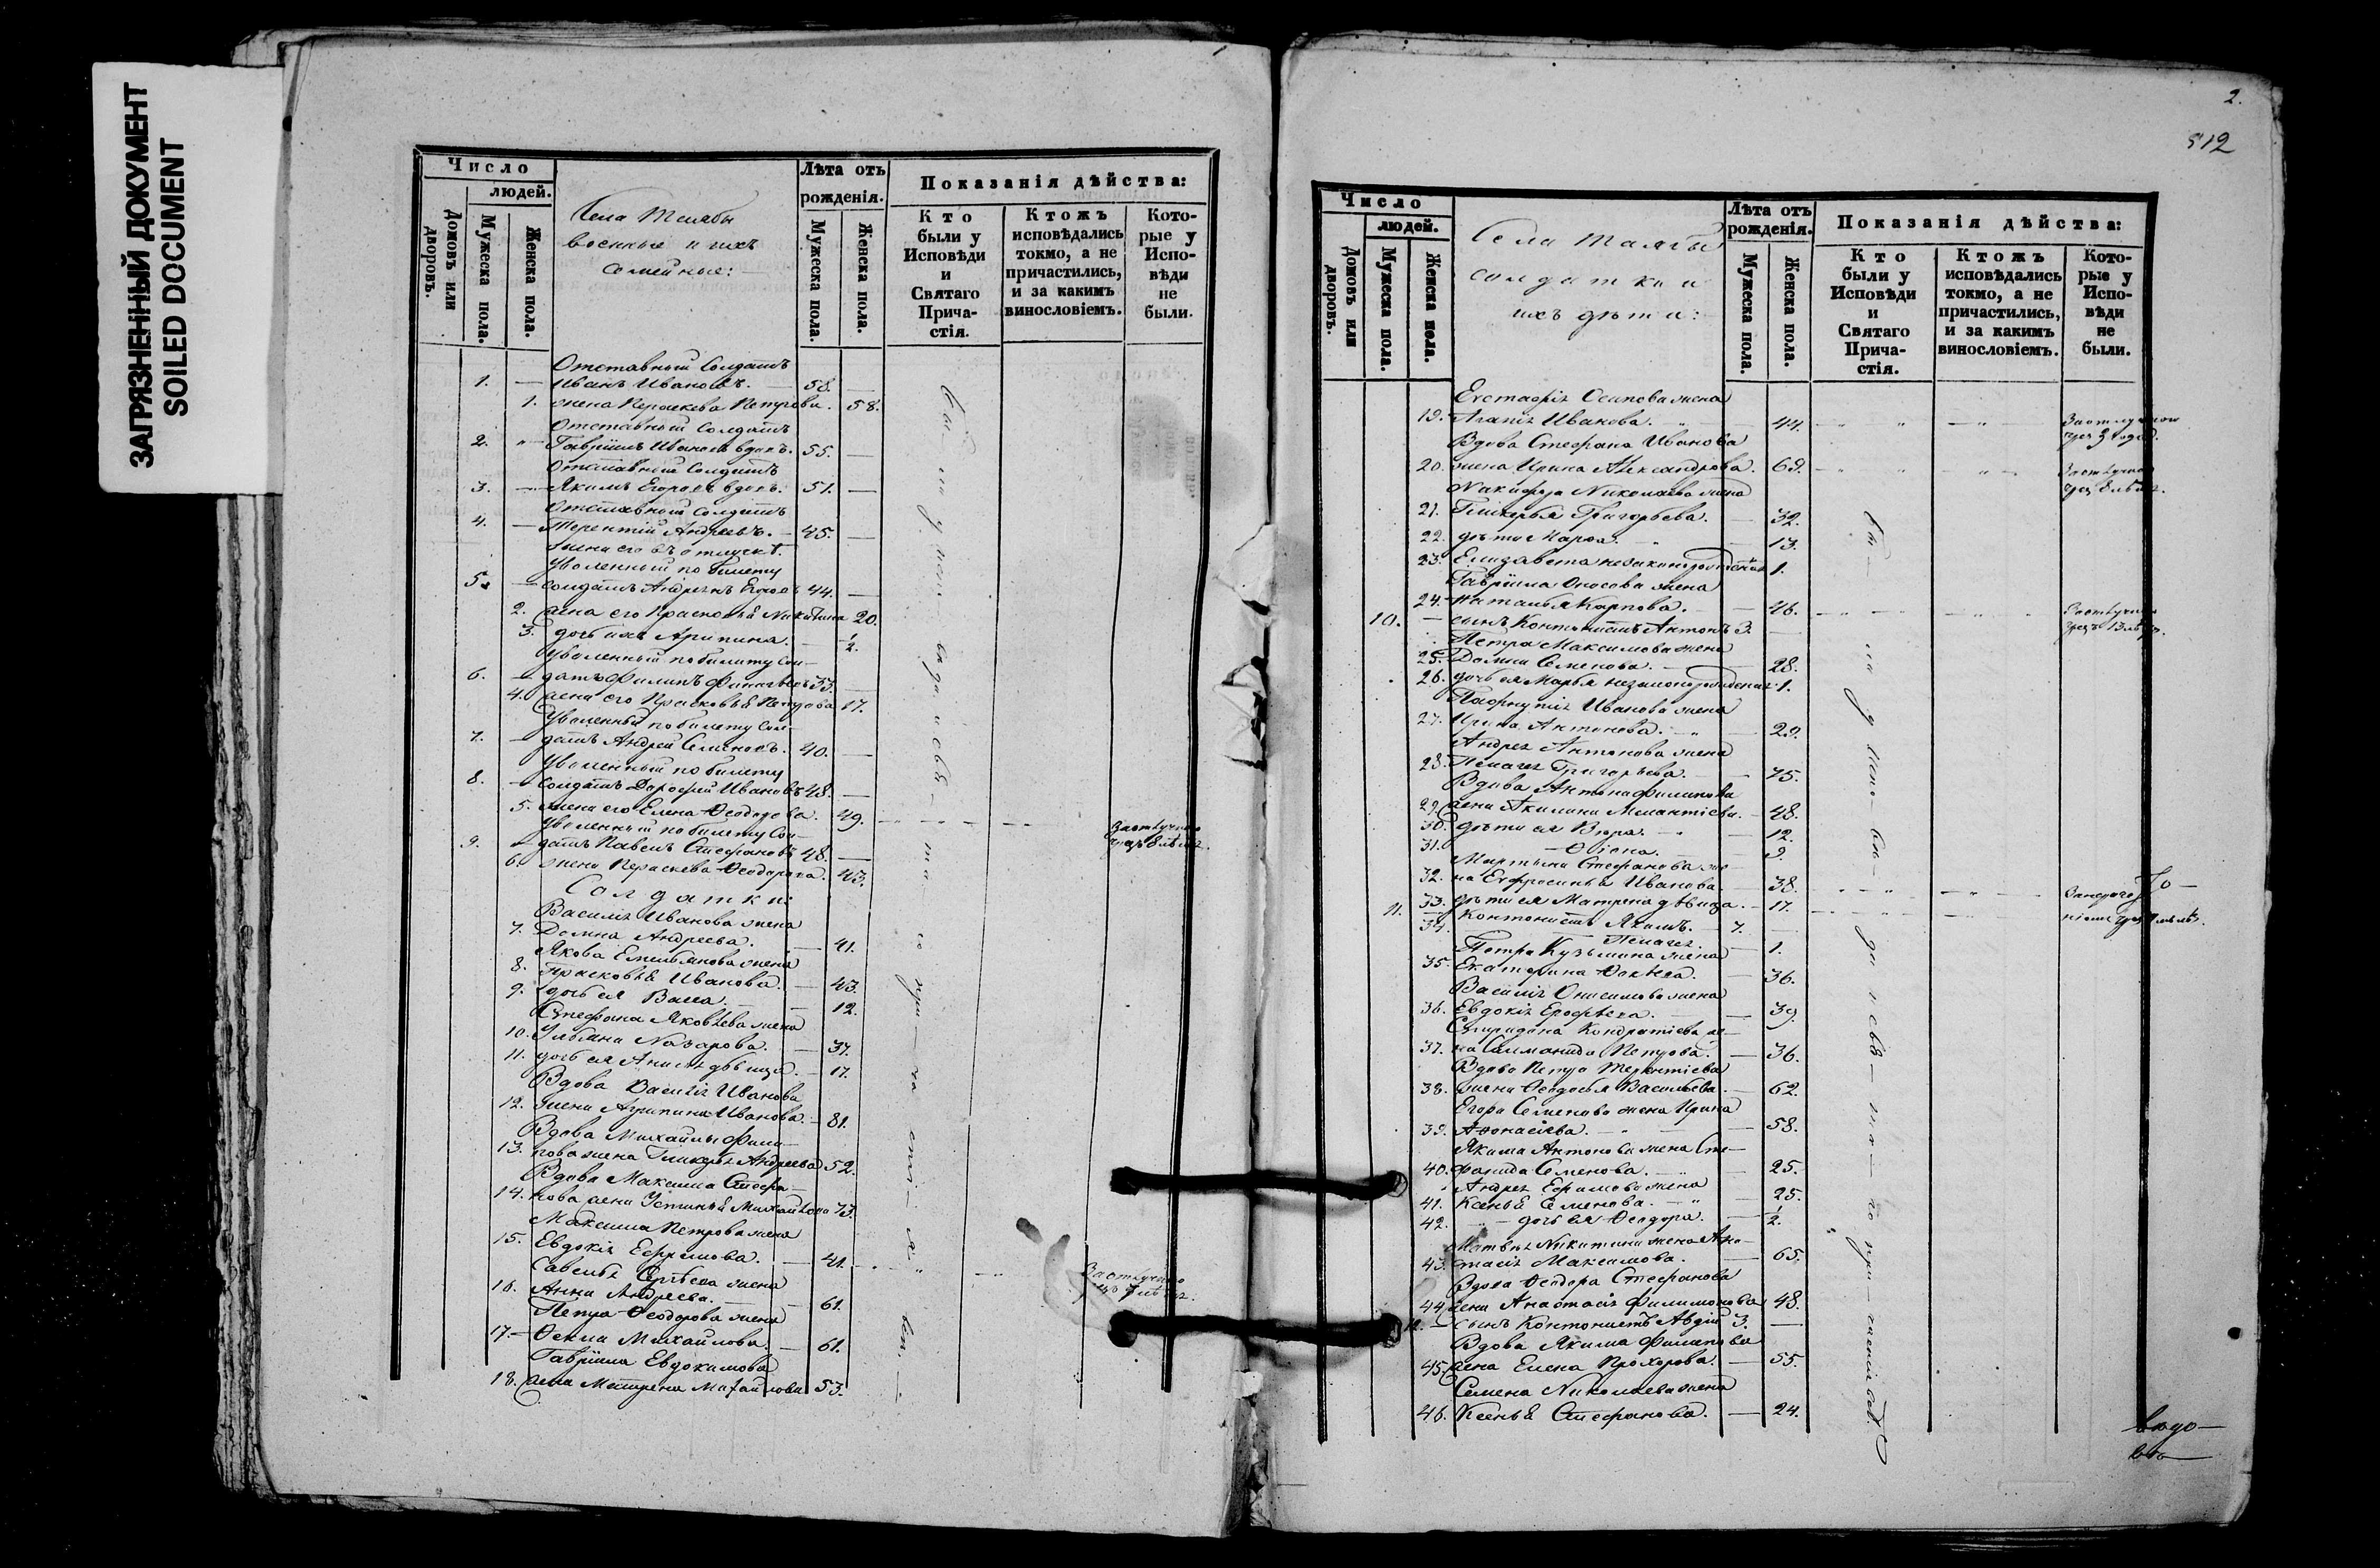 ЗАГРЯЗНЕННЫЙ ДОКУМЕНТ
SOILED DOCUMENT
Число
людей.
Домовъ или дворовъ.
Мужеска пола.
Женска пола.
Села
военные и ихъ
семейные:
Лѣта отъ рожденія.
Мужеска пола.
Женска пола.
Показанія дѣйства:
Кто были у Исповѣди и Святаго Прича-стія.
Ктожъ исповѣдались токмо, а не причастились, и за какимъ винословіемъ.
Кото-рые у Испо-вѣди не были.
Отставный Солдатъ
1. — Иванъ Ивановъ. — 58. —
1. жена Параскева Петрова. 58.
Отставный Солдатъ
2. — Гавріилъ Ивановъ вдовъ. 55. —
Отставный Солдатъ
3. — Якимъ Егоровъ вдовъ. 51. —
Отставный Солдатъ
4. — Терентій Андреевъ. — 45. —
жена его въ отлучкѣ.
Уволенный по билету
5. — солдатъ Андрей Егоровъ 44. —
2. жена его Прасковья Никитина 20.
3. дочь ихъ Арипина. — 1/2.
Уволенный по билету Сол-
6. — датъ Филипъ 33. —
4. жена его Прасковья Петрова 17.
Уволенный по билету Сол-
7. — датъ Андрей Семеновъ. 40. —
Уволенный по билету
8. — солдатъ Дорофей Ивановъ 48. —
5. жена его Елена Ѳеодорова. 49.
Уволенный по билету Сол-
9. — датъ Павелъ Стефановъ 48. —
6. жена Параскева Ѳеодорова. 43.
Солдатки:
Василія Иванова жена
7. Домна Андреева. — 41.
Якова Емельянова жена
8. Прасковья Иванова. — 43.
9. дочь ея Васса. — 12.
Стефана Яковлева жена
10. Ульяна Назарова. — 37.
11. дочь ея дѣвица. — 17.
Вдова Василія Иванова
12. жена Агрипина Иванова. — 81.
Вдова Михайлы Фили-
13. пова жена Гликерья Андреева 52.
Вдова Максима Стефа-
14. нова жена Устинья Михайлова 73.
Максима Петрова жена
15. Евдокія Ефремова. — 41.
Савелья Сергѣева жена
16. Анна Андреева. — 61.
Петра Ѳеодорова жена
17. — Ѳекла Михайлова. — 61.
Гавріила Евдокимова
18. жена Матрена Михайлова 53.
2.
512
Число
людей.
Домовъ или дворовъ.
Мужеска пола.
Женска пола.
Села
солдатки и
ихъ дѣти:
Лѣта отъ рожденія.
Мужеска пола.
Женска пола.
Показанія дѣйства:
Кто были у Исповѣди и Святаго Прича-стія.
Ктожъ исповѣдались токмо, а не причастились, и за какимъ винословіемъ.
Кото-рые у Испо-вѣди не были.
Евстафія Осипова жена
19. Агапія Иванова. — 44.
Вдова Стефана Иванова
20. жена Ирина Александрова. 69.
Никифора Николаева жена
21. Гликерья Григорьева. — 32.
22. дѣти Марѳа. — 13.
23. Елизавета незаконорожденая 1.
Гавріила жена
24. Наталья Карпова. — 46.
10. — сынъ Контонистъ Антонъ 3. —
Петра Максимова жена
25. Домна Семенова. — 28.
26. дочь ея Марья незаконорожденая 1.
Пафнутія Иванова жена
27. Ирина Антонова. — 29.
Андрея Антонова жена
28. Пелагея Григорьева. — 75.
Вдова Антона Филипова
29. жена Акилина — 48.
30. дѣти ея Вѣра. — 12.
31. — 9.
Мартына Стефанова же-
32. на Евфросинья Иванова. — 38.
33. дѣти ея Матрена дѣвица. — 17.
11. — Контонистъ Якимъ. — 7. —
34. — Пелагея. — 1.
Петра Кузьмина жена
35. Екатерина — 36.
Василія Онисимова жена
36. Евдокія Ерофѣева. — 39.
Спиридона Кондратіева же-
37. на Саломонида Петрова. — 36.
Вдова Петра Терентіева
38. жена Ѳеодосья Васильева. — 62.
Егора Семенова жена Ирина
39. Аѳонасіева. — 58.
Якима Антонова жена Сте-
40. фанида Семенова. — 25.
Андрея Ефимова жена
41. Ксенья Семенова. — 25.
42. — дочь ея Ѳеодора. — 1/2.
Матвѣя Никитина жена Ана-
43. стасія Максимова. — 65.
Вдова Ѳеодора Стефанова
44. жена Анастасія Филимонова 48.
12. — сынъ Контонистъ Авдій 3. —
Вдова Якима Филипова
45. жена Елена Прохорова. — 55.
Семена Николаева жена
46. Ксенья Стефанова. — 24.